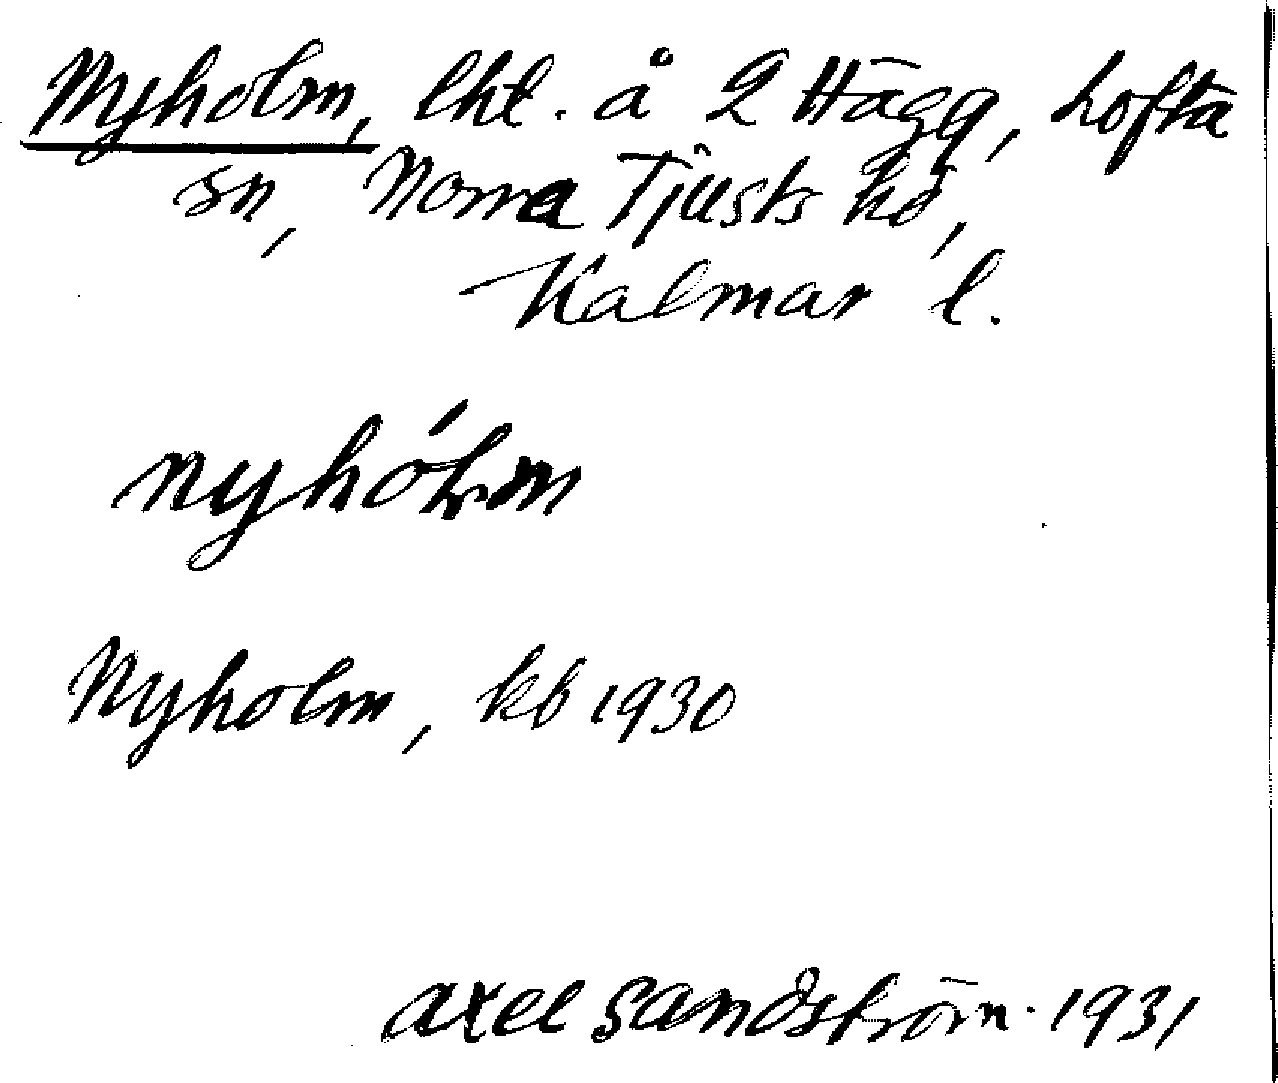 Nyholm, lht. å 2 Hägg, Lofta
sn, Norra Tjusts hd,
Kalmar l.
nyhólm
Nyholm, kb 1930
Axel Sandström. 1931